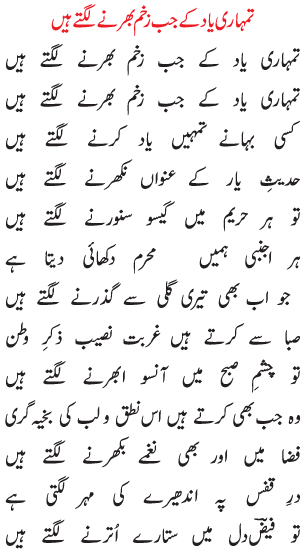 تمہاری یاد کے جب زخم بھرنے لگتے ہیں
تمہاری یاد کے جب زخم بھرنے لگتے ہیں
تمہاری یاد کے جب زخم بھرنے لگتے ہیں
کسی بہانے تمہیں یاد کرنے لگتے ہیں
حدیثِ یار کے عنواں نکھرنے لگتے ہیں
تو ہر حریم میں گیسو سنورنے لگتے ہیں
ہر اجنبی ہمیں محرم دکھائی دیتا ہے
جو اب بھی تیری گلی سے گذرنے لگتے ہیں
صبا سے کرتے ہیں غربت نصیب ذکرِ وطن
تو چشمِ صبح میں آنسو ابھرنے لگتے ہیں
وہ جب بھی کرتے ہیں اس نطق و لب کی بخیہ گری
فضا میں اور بھی نغمے بکھرنے لگتے ہیں
درِ قفس پہ اندھیرے کی مہر لگتی ہے
تو فیضؔ دل میں ستارے اُترنے لگتے ہیں